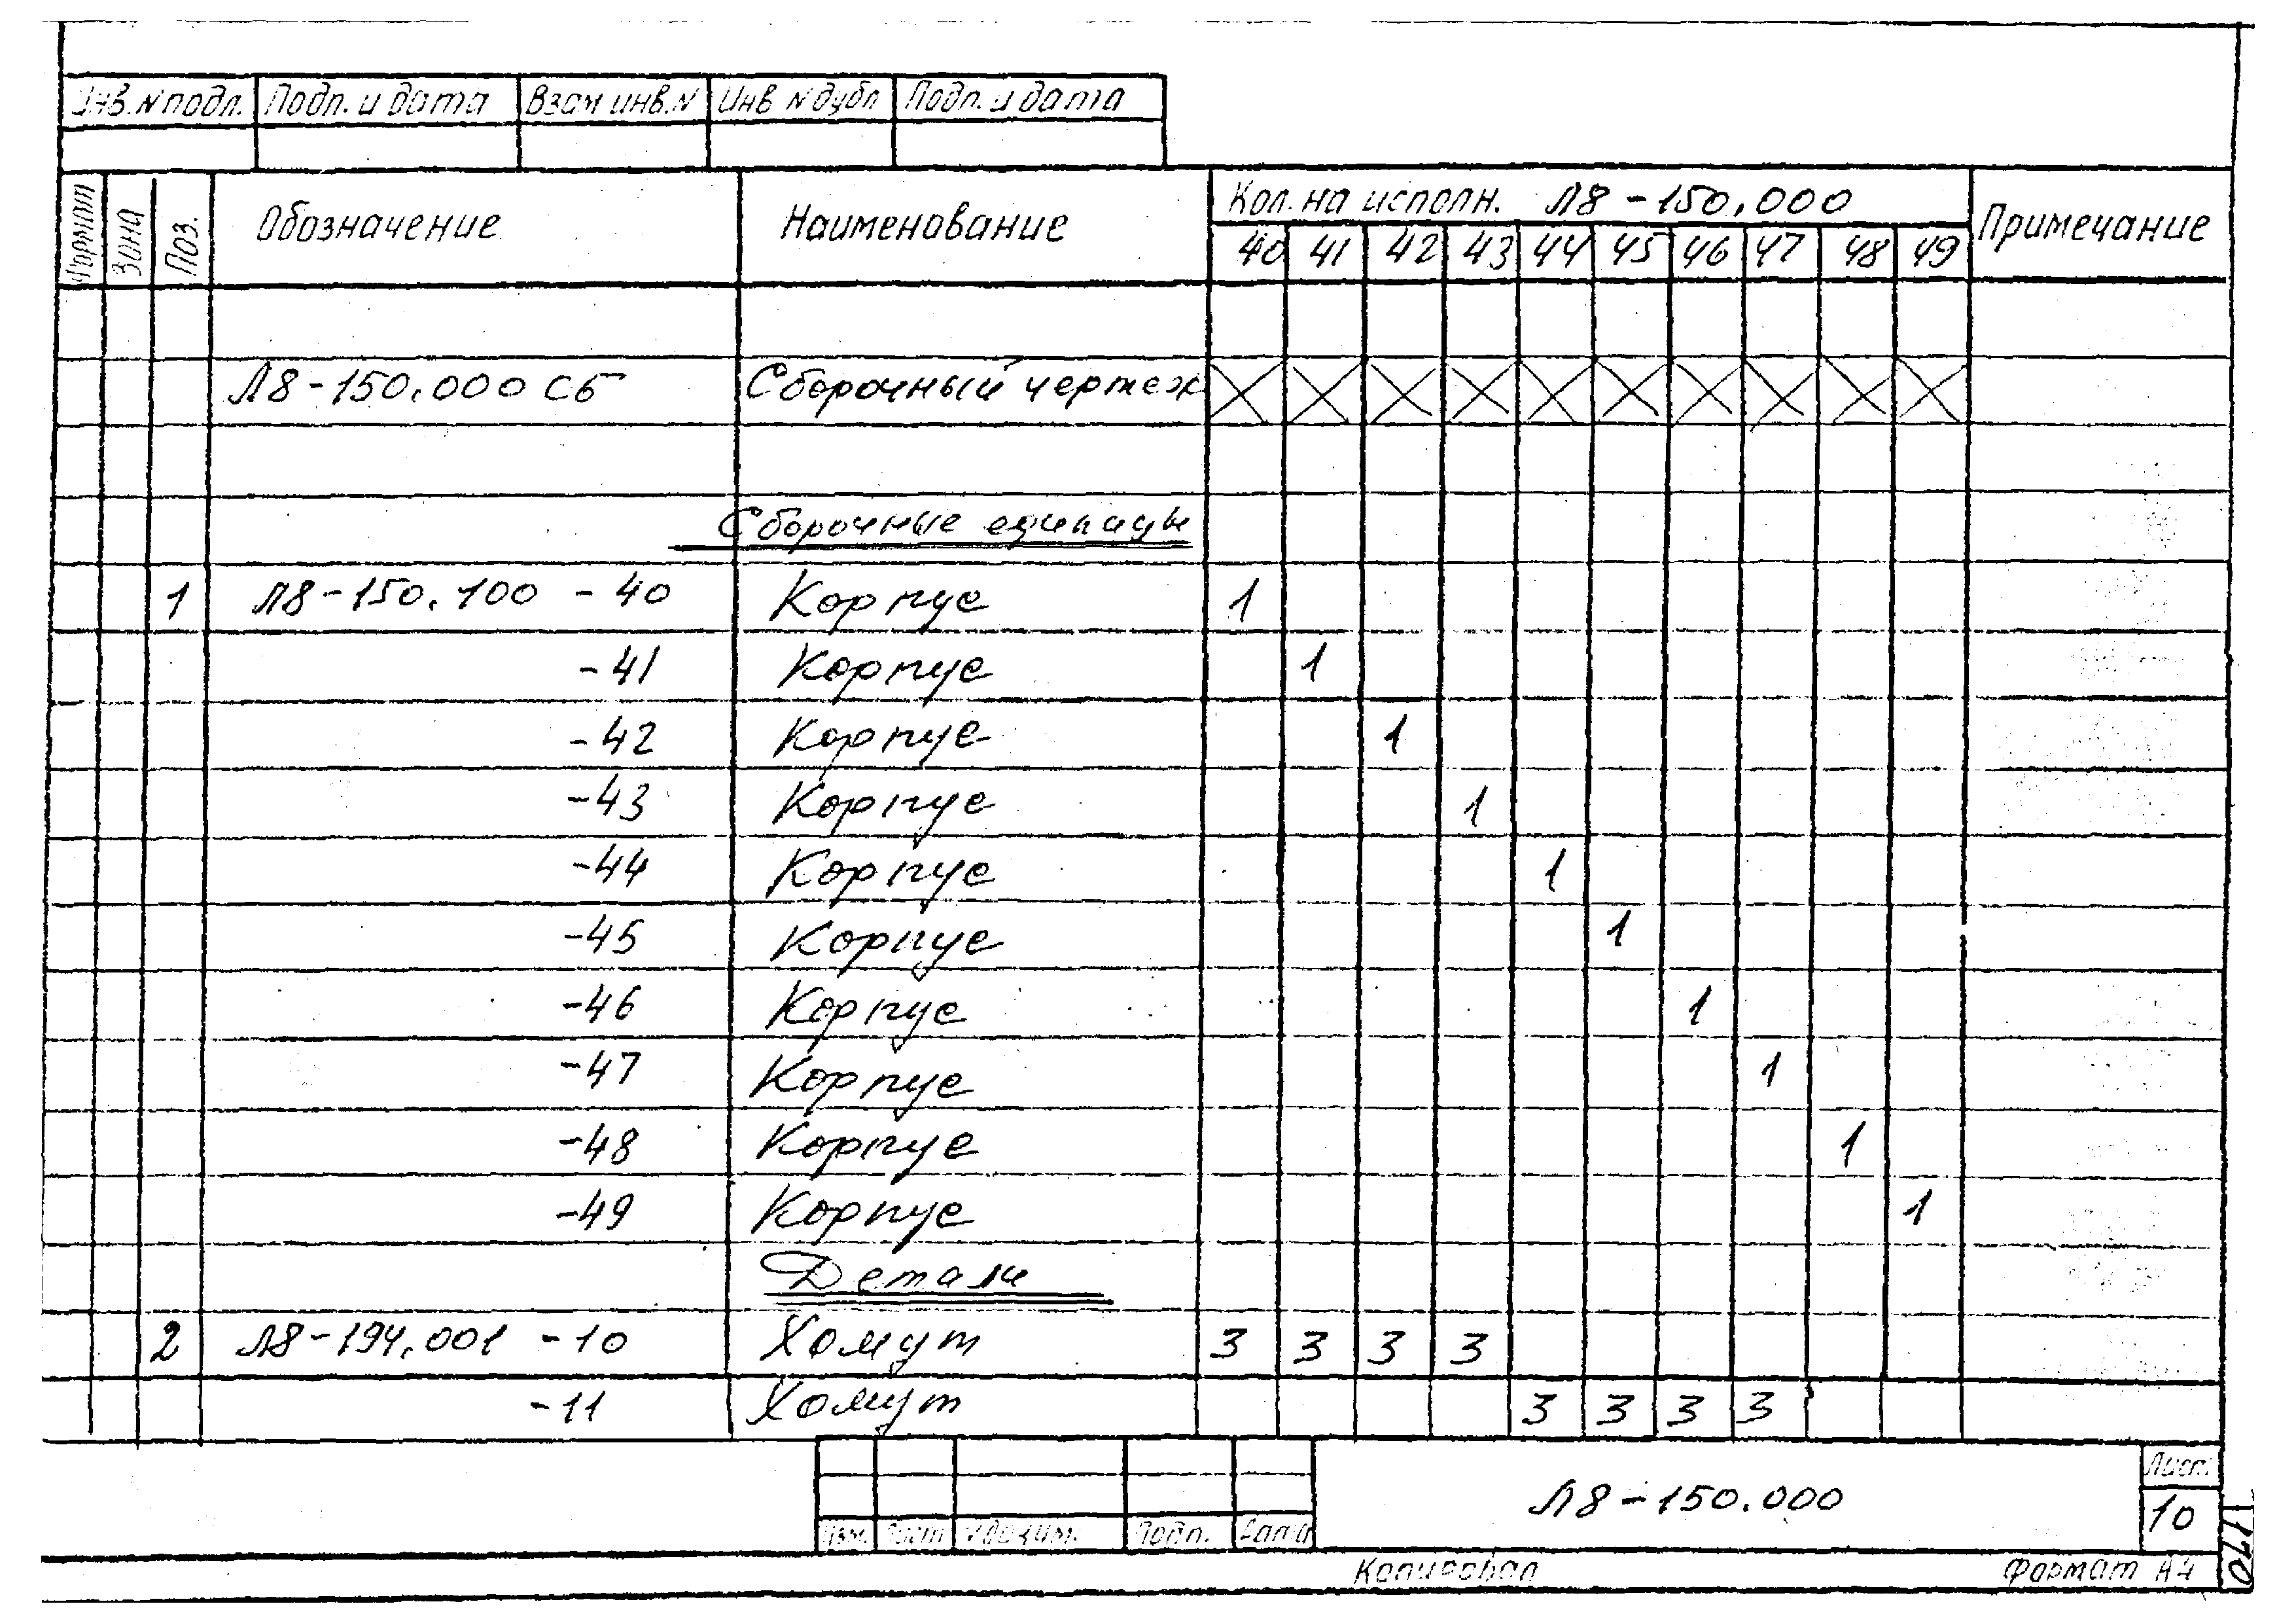 Инв. N подл. Подп. и дата Взам инв. N Инв N дубл Подп. и дата
Формат Зона Поз. Обозначение Наименование Кол. на исполн. Л8-150.000 Примечание
40 41 42 43 44 45 46 47 48 49
Л8-150.000 СБ Сборочный чертеж
Сборочные единицы
1 Л8-150.100 -40 Корпус 1
-41 Корпус 1
-42 Корпус 1
-43 Корпус 1
-44 Корпус 1
-45 Корпус 1
-46 Корпус 1
-47 Корпус 1
-48 Корпус 1
-49 Корпус 1
Детали
2 Л8-194.001 -10 Хомут 3 3 3 3
-11 Хомут 3 3 3 3
Л8-150.000
Лист
10
Изм. Лист N докум. Подп. Дата
Копировал Формат А4